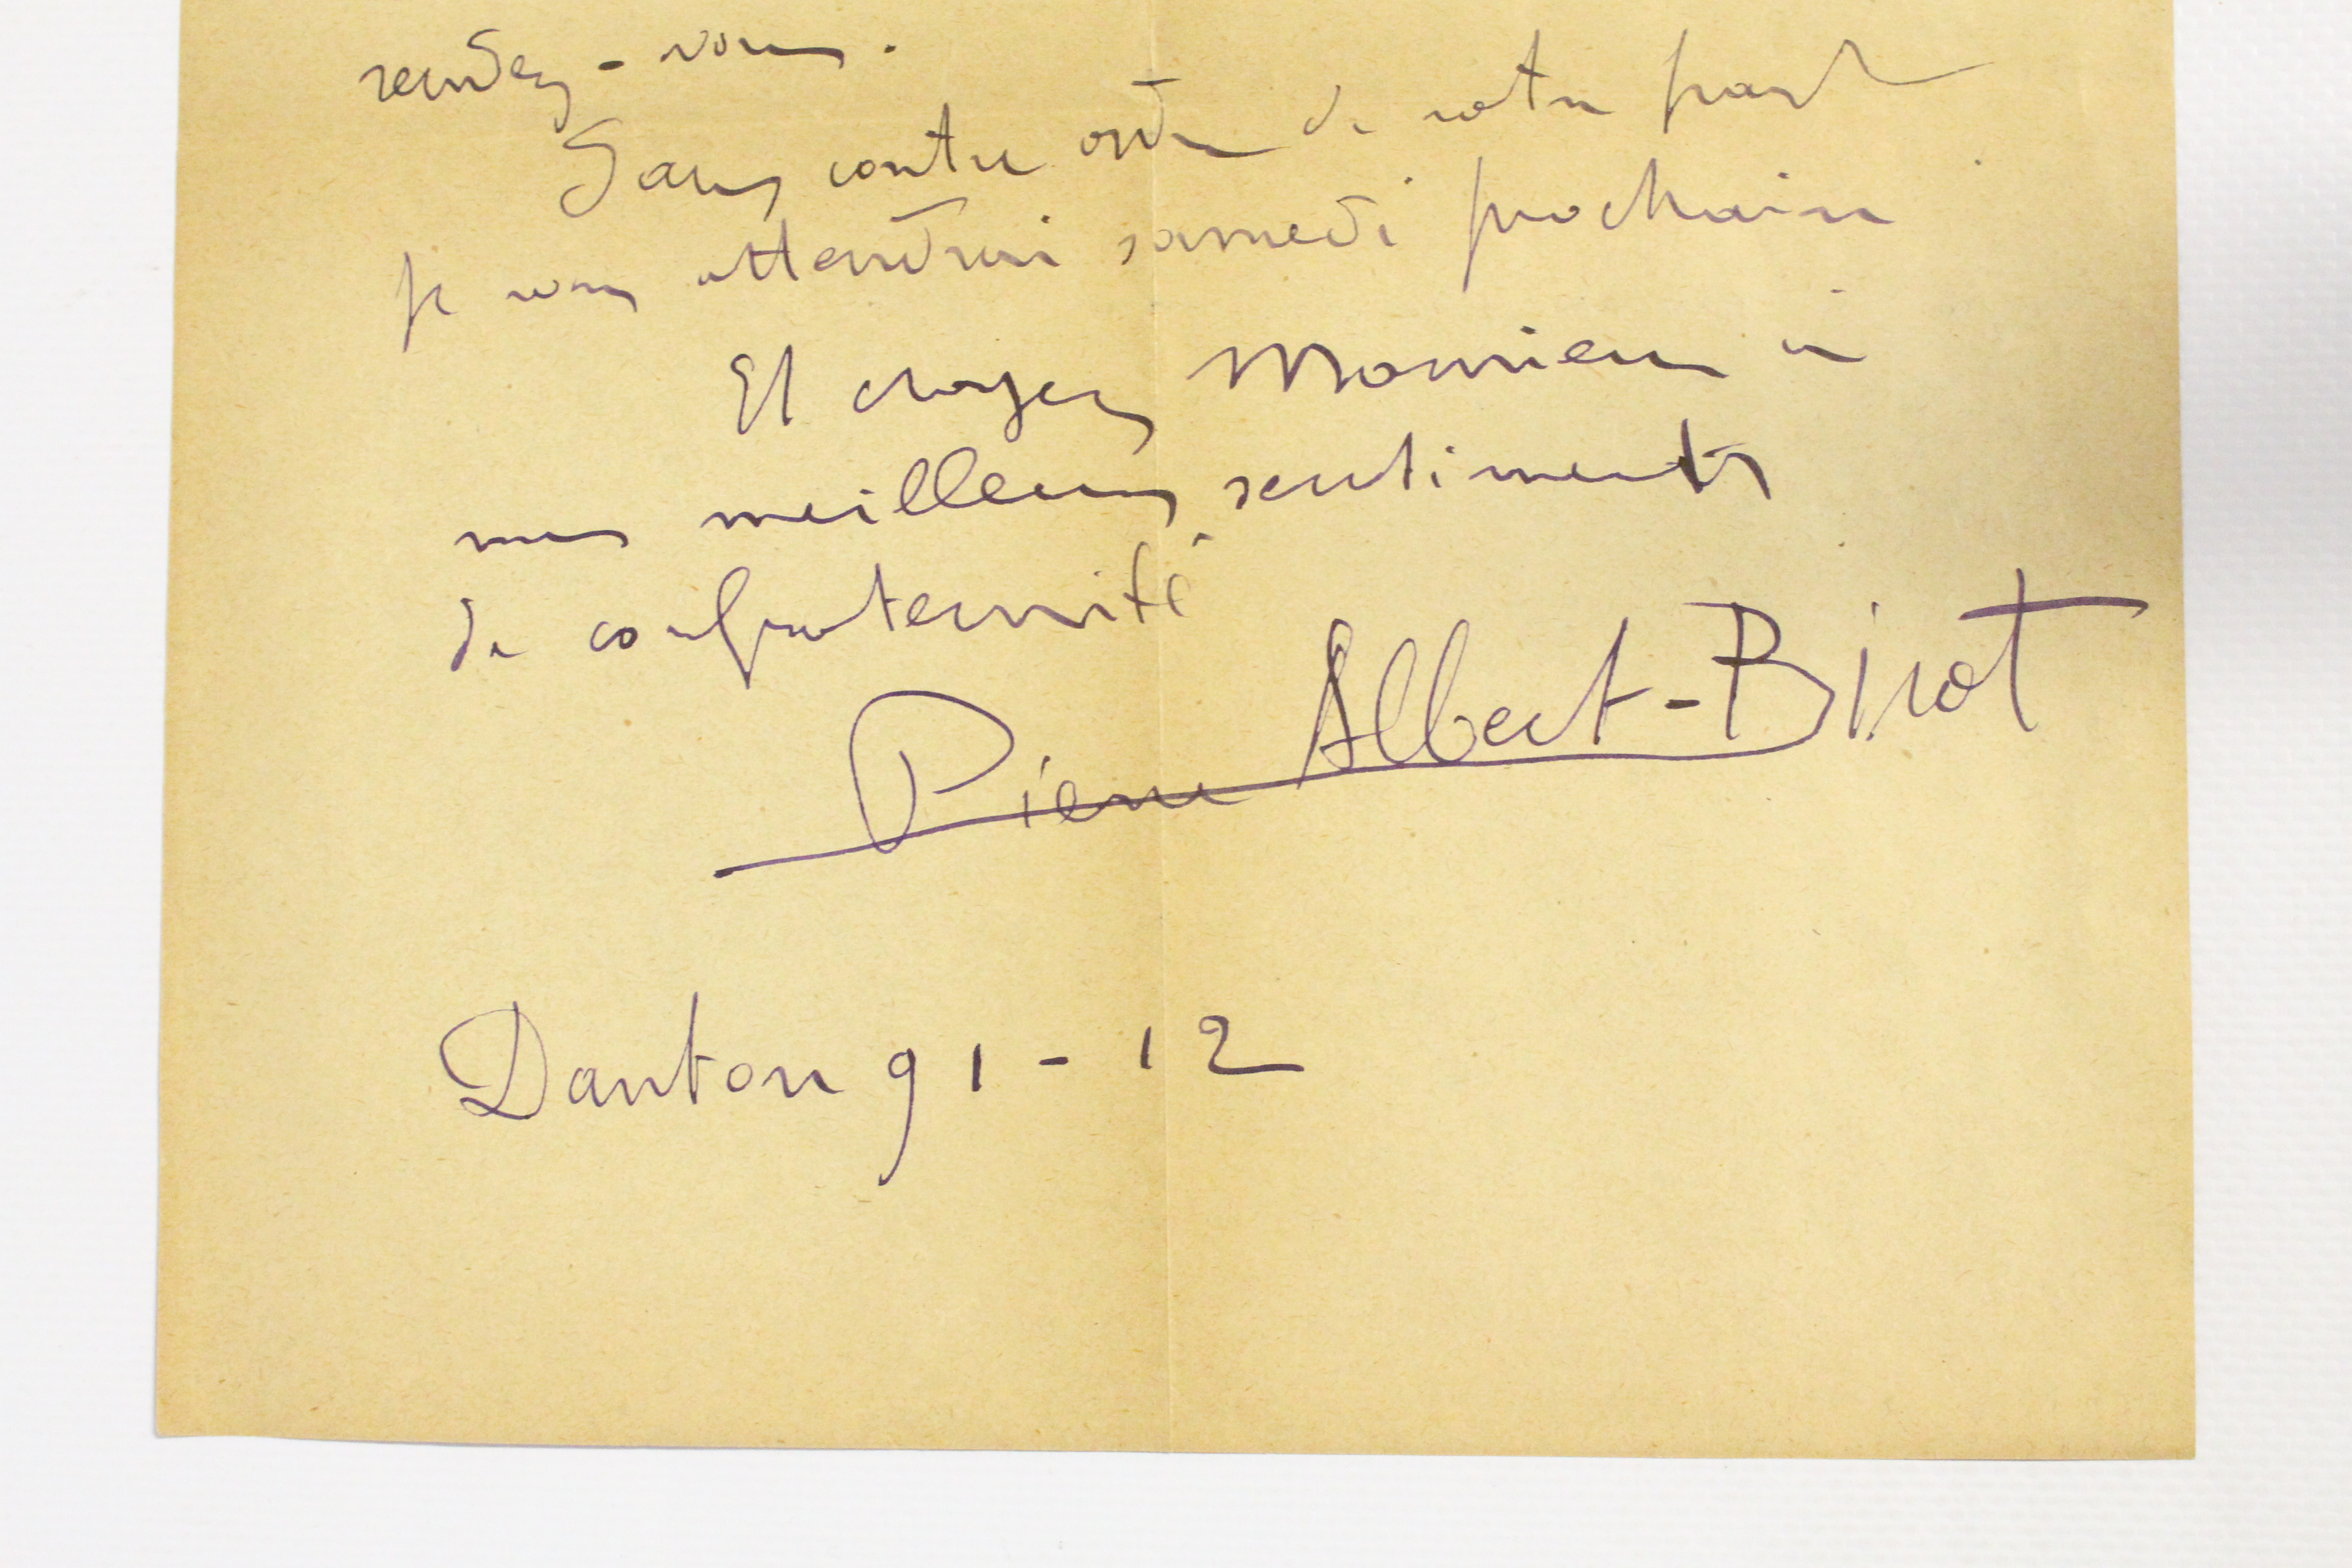 rendez-vous.
Sans contre ordre de votre part
je vous attendrai samedi prochain
Et croyez Monsieur à
mes meilleurs sentiments
de confraternité
Pierre Albert-Birot
Danton 91-12